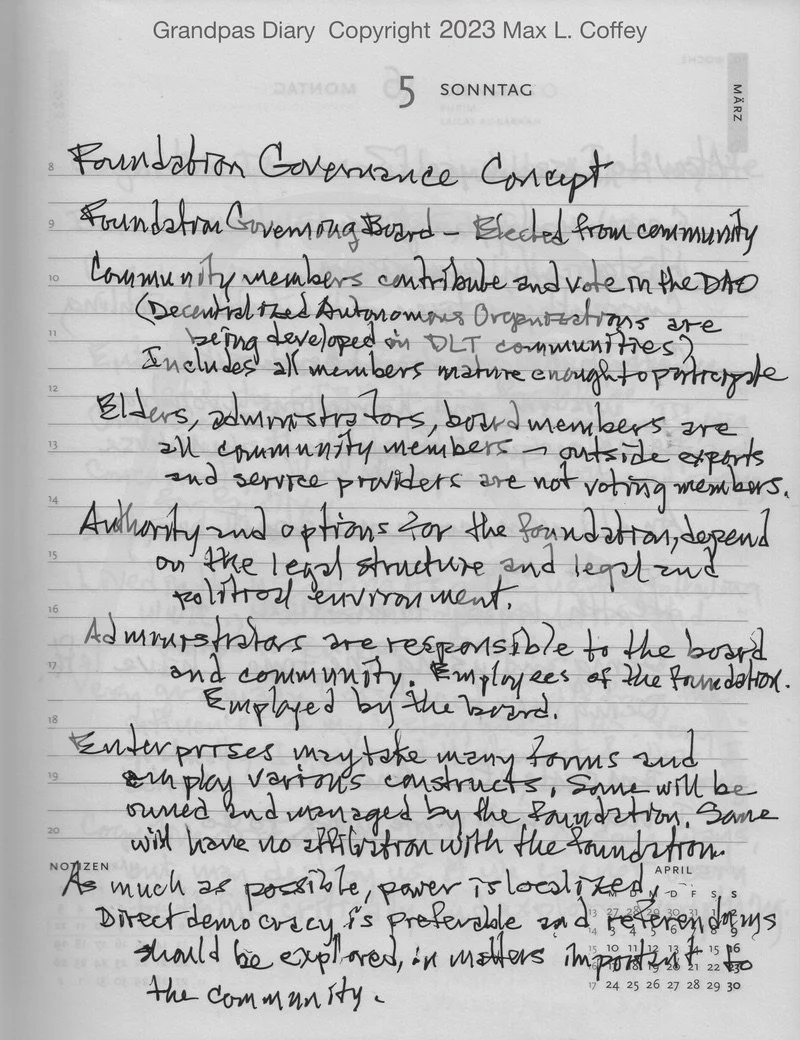 Grandpas Diary Copyright 2023 Max L. Coffey
5 SONNTAG
MÄRZ
8 Foundation Governance Concept
9 Foundation Governong Board – Elected from community
10 Community members contribute and vote in the DAO
(Decentralized Autonomous Organizations are
11 being developed in DLT communities)
Includes all members mature enough to participate
12
Elders, administrators, board members are
13 all community members – outside experts
and service providers are not voting members.
14
Authority and options for the foundation, depend
15 on the legal structure and legal and
political environment.
16
Administrators are responsible to the board
17 and community. Employees of the foundation.
Employed by the board.
18
Enterprises may take many forms and
19 employ various constructs. Some will be
owned and managed by the foundation. Some
20 will have no affiliation with the foundation.
NOTIZEN
APRIL
As much as possible, power is localized.
Direct democracy is preferable and referendoms
should be explored, in matters important to
the community.
M D M D F S S
13 27 28 29 30 31 1 2
14 3 4 5 6 7 8 9
15 10 11 12 13 14 15 16
16 17 18 19 20 21 22 23
17 24 25 26 27 28 29 30